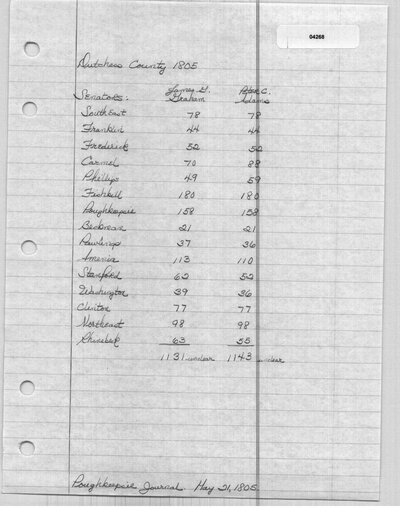 04268
Dutchess County 1805
Senators: James G. Graham Peter C. Adams
Southeast 78 78
Franklin 44 44
Frederick 52 52
Carmel 70 88
Phillips 49 59
Fishkill 180 180
Poughkeepsie 158 158
Beekman 21 21
Pawlings 37 36
Amenia 113 110
Stanford 62 52
Washington 39 36
Clinton 77 77
Northeast 98 98
Rhinebeck 63 55
1131 unclear 1143 unclear
Poughkeepsie Journal. May 21, 1805.